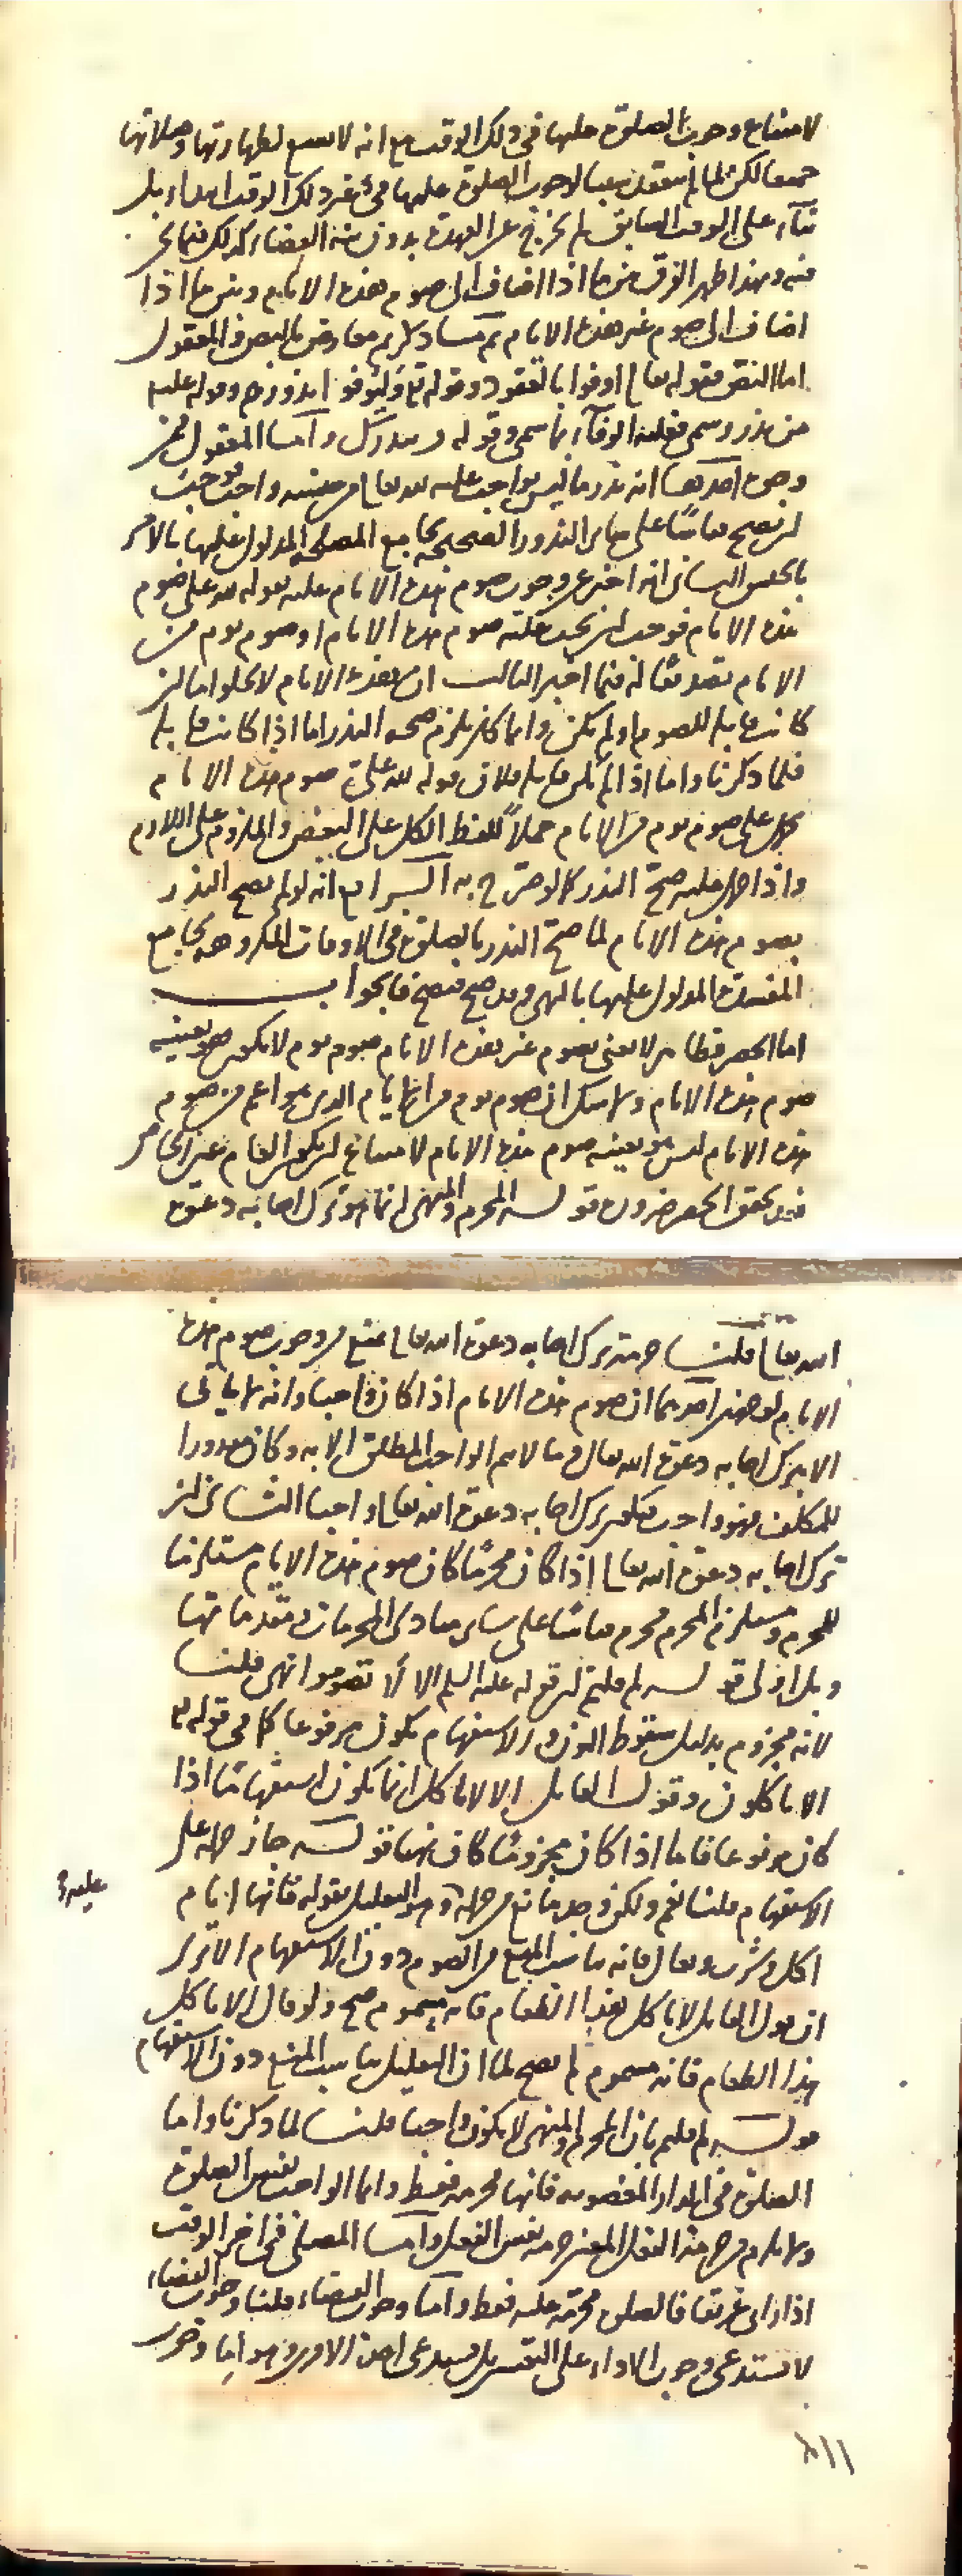 لامتناع وجوب الصلوة عليها في ذلك الوقت مع انه لا يسع لطهارتها وصلاتها
جميعا لكن لما لم ينعقد سببا لوجوب الصلوة عليها في غير ذلك الوقت ابتداء بل
بناء على الوقت السابق لم يخرج عن العهدة بدون القضاء كذلك فيما نحن
فيه وبهذا ظهر الفرق بين ما اذا اضاف الى صوم هذه الايام وبين ما اذا
اضاف الى صوم غير هذه الايام ثم ما ذكرتم معارض بالنص والمعقول
اما النص فقوله تعالى اوفوا بالعقود وقوله تع وليوفوا نذورهم وقوله عليه
من نذر وسمى فعليه الوفاء بما سمى وقوله وأما المعقول فمن
وجوه احدها انه نذر ما ليس بواجب عليه لله تعالى من جنسه واجب فوجب
ان يصح قياسا على سائر النذور الصحيحة بجامع المصلحة المدلول عليها بالامر
الثاني انه اخبر عن وجوب صوم هذه الايام عليه بقوله لله علي صوم
هذه الايام فوجب ان يجب عليه صوم هذه الايام او صوم يوم من
الايام تصديقا له فيما اخبر الثالث ان هذه الايام لا يخلو اما ان
كانت قابلة للصوم او لم تكن وايا ما كان يلزم صحة النذر اما اذا كانت قابلة
فلما ذكرنا واما اذا لم تكن قابلة فلان قوله لله علي صوم هذه الايام
يحمل على صوم يوم من الايام حملا للفظ الكل على البعض والملزوم على اللازم
واذا حمل عليه صح النذر كما لو صرح به الرابع انه لو لم يصح النذر
بصوم هذه الايام لما صح النذر بالصلوة في الاوقات المكروهة بجامع
المفسدة المدلول عليها بالنهي وقد صح فيصح فالجواب
اما الحصر فظاهر لا يعنى بصوم غير هذه الايام صوم يوم لا يكون هو بعينه
صوم هذه الايام ولا شك ان صوم يوم من الايام الذي هو اعم من صوم
هذه الايام ليس هو بعينه صوم هذه الايام لامتناع ان يكون العام عين الخاص
فقد تحقق الحصر ضرورة قوله المحرم والمنهي انما هو ترك اجابة دعوة
الله تعالى قلنا حرمة ترك اجابة دعوة الله تعالى يمنع من وجوب صوم هذه
الايام لوجهين احدهما ان صوم هذه الايام اذا كان واجبا وانه لا يتأتى
الا بترك اجابة دعوة الله تعالى وما لا يتم الواجب المطلق الا به وكان مقدورا
للمكلف فهو واجب فيكون ترك اجابة دعوة الله تعالى واجبا الثاني ان
ترك اجابة دعوة الله تعالى اذا كان محرما كان صوم هذه الايام مستلزما
للمحرم ومستلزم المحرم محرم قياسا على سائر مبادى المحرمات ومقدماتها
وبل اولى قوله لم قلتم ان قوله عليه السلم الا لا تصوموا نهي قلنا
لانه مجزوم بدليل سقوط النون والاستفهام يكون مرفوعا كما في قوله تع
الا تاكلون وقول القائل الا لا تاكل انما يكون استفهاما اذا
كان مرفوعا فاما اذا كان مجزوما كان نهيا قوله جاز حمله على
الاستفهام قلنا نعم ولكن وجد مانع من حمله وهو التعليل بقوله فانها ايام
عليه؟
اكل وشرب وبعال فانه يناسب المنع من الصوم دون الاستفهام الا ترى
ان يقول القائل لا تاكل هذا الطعام فانه مسموم صح ولو قال الا تاكل
هذا الطعام فانه مسموم لم يصح لما ان التعليل يناسب المنع دون الاستفهام
قوله لم قلتم بان المحرم والمنهي لا يكون واجبا قلنا لما ذكرنا واما
الصلوة في الدار المغصوبة فانها محرمة فقط وانما الواجب نفس الصلوة
ولا يلزم من حرمة الفعل المعين حرمة نفس الفعل وأما المصلى في اخر الوقت
اذا راى غريقا فالصلوة محرمة عليه فقط وأما وجوب القضاء قلنا وجوب القضاء
لا يستدعى وجوب الاداء على التعيين بل يستدعى احد الامرين وهو اما وجوب